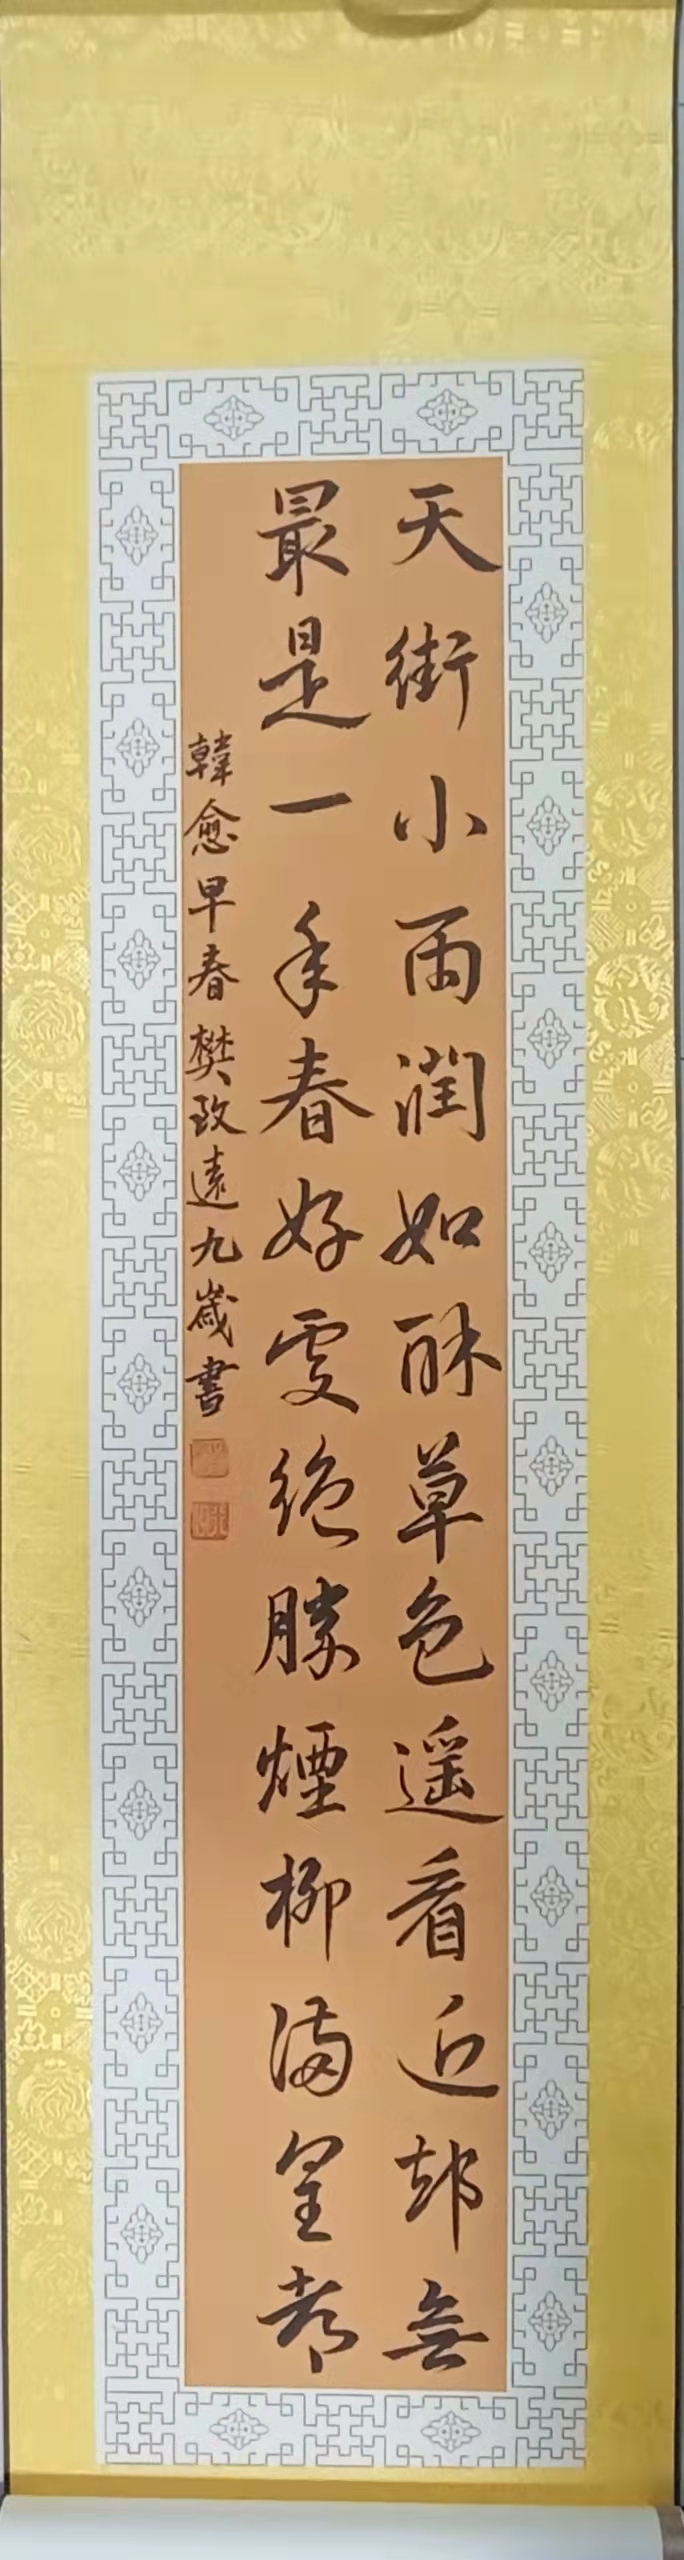 天街小雨潤如酥草色遥看近却無
最是一年春好處絶勝煙柳滿皇都
韓愈早春樊致遠九歲書